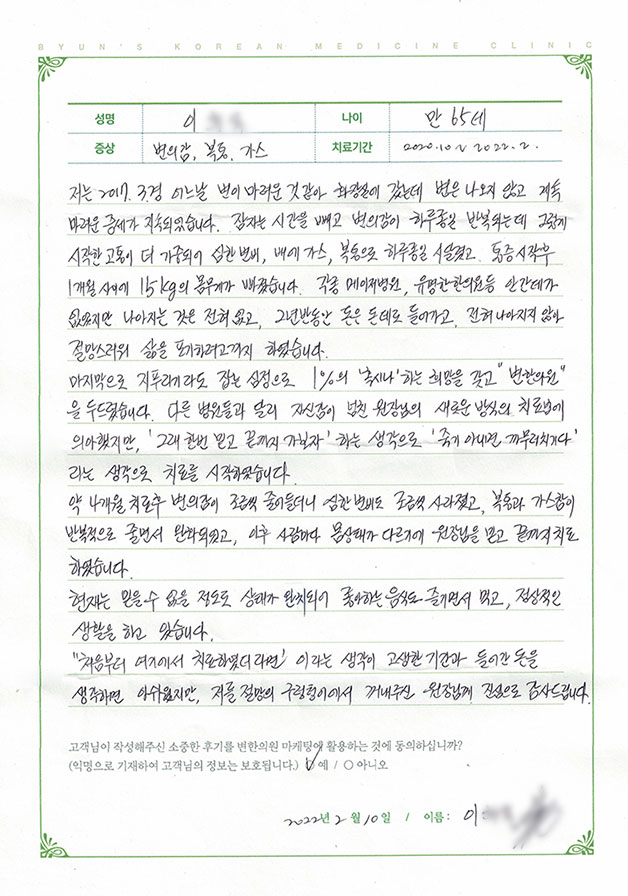 BYUN'S KOREAN MEDICINE CLINIC
성명 이 나이 만 65세
증상 변의감, 복통, 가스 치료기간 2020.10 ~ 2022. 2.
저는 2017. 3.경 어느날 변이 마려운 것 같아 화장실에 갔는데 변은 나오지 않고 계속
마려운 증세가 지속되었습니다. 잠자는 시간을 빼고 변의감이 하루종일 반복되는데 그렇게
시작한 고통이 더 가중되어 심한 변비, 배에 가스, 복통으로 하루종일 시달렸고. 통증시작후
1개월 사이에 15kg의 몸무게가 빠졌습니다. 각종 메이저병원, 유명한 한의원등 안간데가
없었지만 나아지는 것은 전혀 없고, 그 몇년동안 돈은 돈대로 들어가고, 전혀 나아지지 않아
절망스러워 삶을 포기하려고까지 하였습니다.
마지막으로 지푸라기라도 잡는 심정으로 1%의 '혹시나' 하는 희망을 갖고 "변한의원"
을 두드렸습니다. 다른 병원들과 달리 자신감이 넘친 원장님의 새로운 방식의 치료법에
의아했지만, '그래 한번 믿고 끝까지 가보자' 하는 생각으로 '죽기 아니면 까무러치기다'
라는 생각으로 치료를 시작하였습니다.
약 4개월 치료후 변의감이 조금씩 줄어들더니 심한 변비도 조금씩 사라졌고, 복통과 가스참이
반복적으로 줄면서 완화되었고, 이후 사람마다 몸상태가 다르기에 원장님을 믿고 끝까지 치료
하였습니다.
현재는 믿을 수 없을 정도로 상태가 완치되어 좋아하는 음식도 즐기면서 먹고, 정상적인
생활을 하고 있습니다.
"처음부터 여기에서 치료하였더라면' 이라는 생각이 고생한 기간과 들어간 돈을
생각하면 아쉬웠지만, 저를 절망의 구렁텅이에서 꺼내주신 원장님께 진심으로 감사드립니다.
고객님이 작성해주신 소중한 후기를 변한의원 마케팅에 활용하는 것에 동의하십니까?
(익명으로 기재하여 고객님의 정보는 보호됩니다.) ✓예 / ○ 아니오
2022년 2월 10일 / 이름 : 이